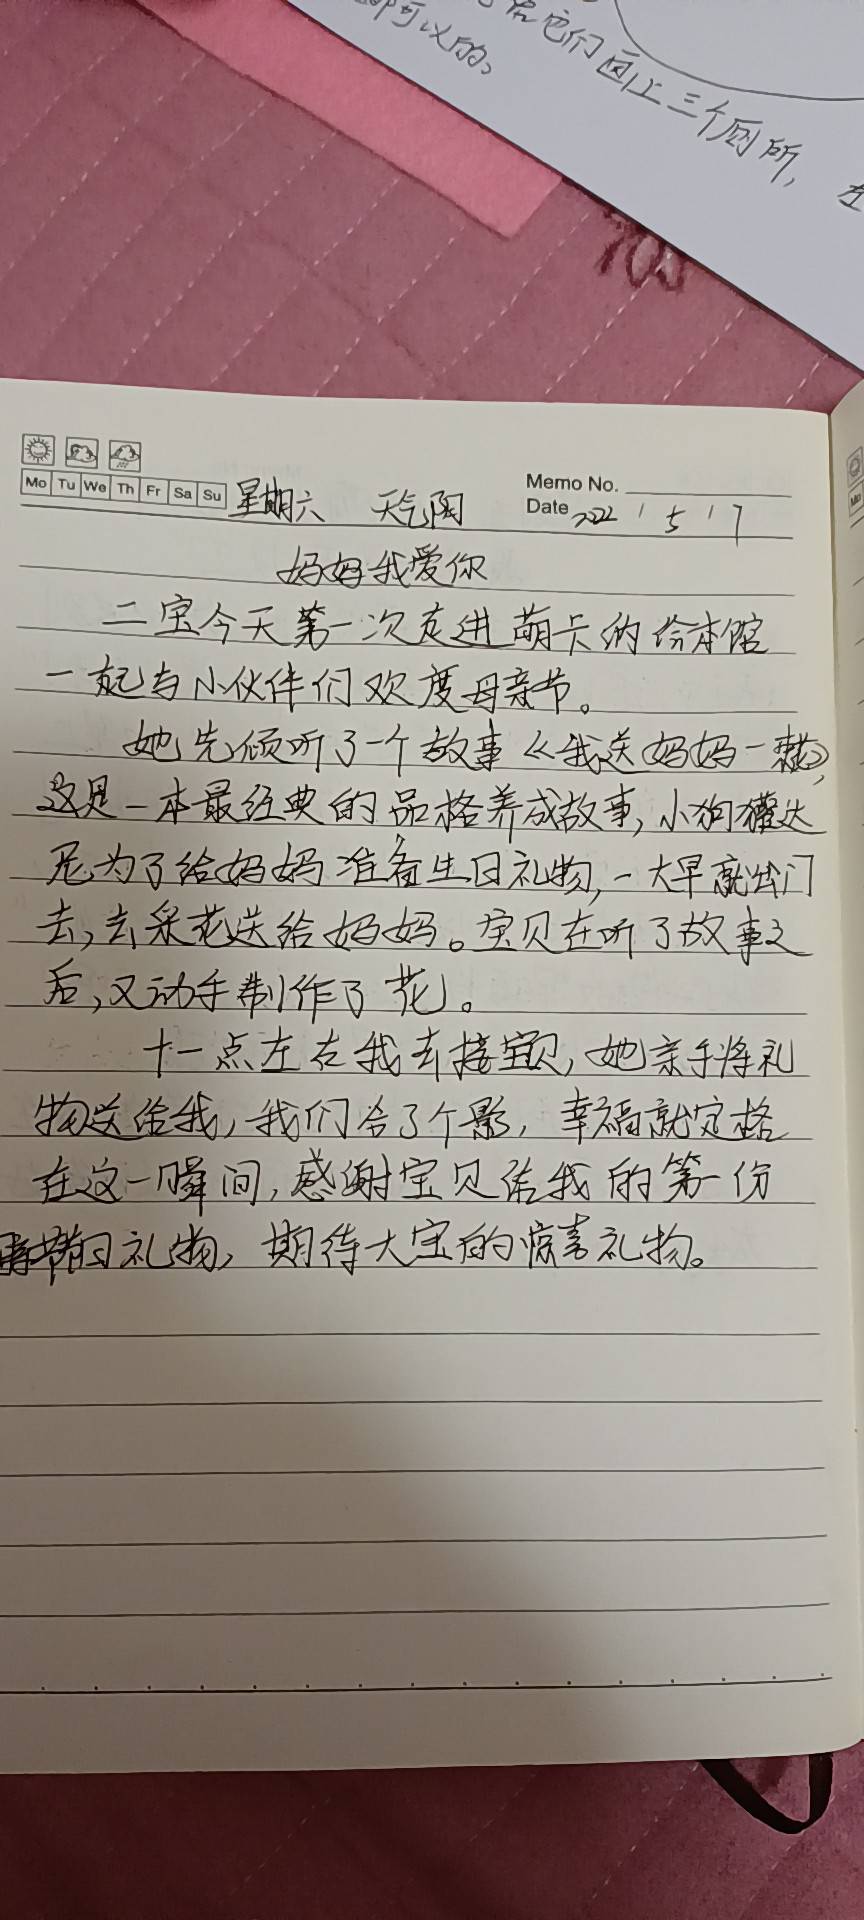 它们画上三个厕所，在
都可以的。
Mo Tu We Th Fr Sa Su
星期六 天气阴
Memo No.
Date 2022 / 5 / 7
妈妈我爱你
二宝今天第一次走进萌卡的绘本馆
一起与小伙伴们欢度母亲节。
她先倾听了一个故事《我送妈妈一束花》，
这是一本最经典的品格养成故事，小狗獾达
尼为了给妈妈准备生日礼物，一大早就出门
去，去采花送给妈妈。宝贝在听了故事之
后，又动手制作了花。
十一点左右我去接宝贝，她亲手将礼
物送给我，我们合了个影，幸福就定格
在这一瞬间，感谢宝贝给我的第一份
节日礼物，期待大宝的惊喜礼物。